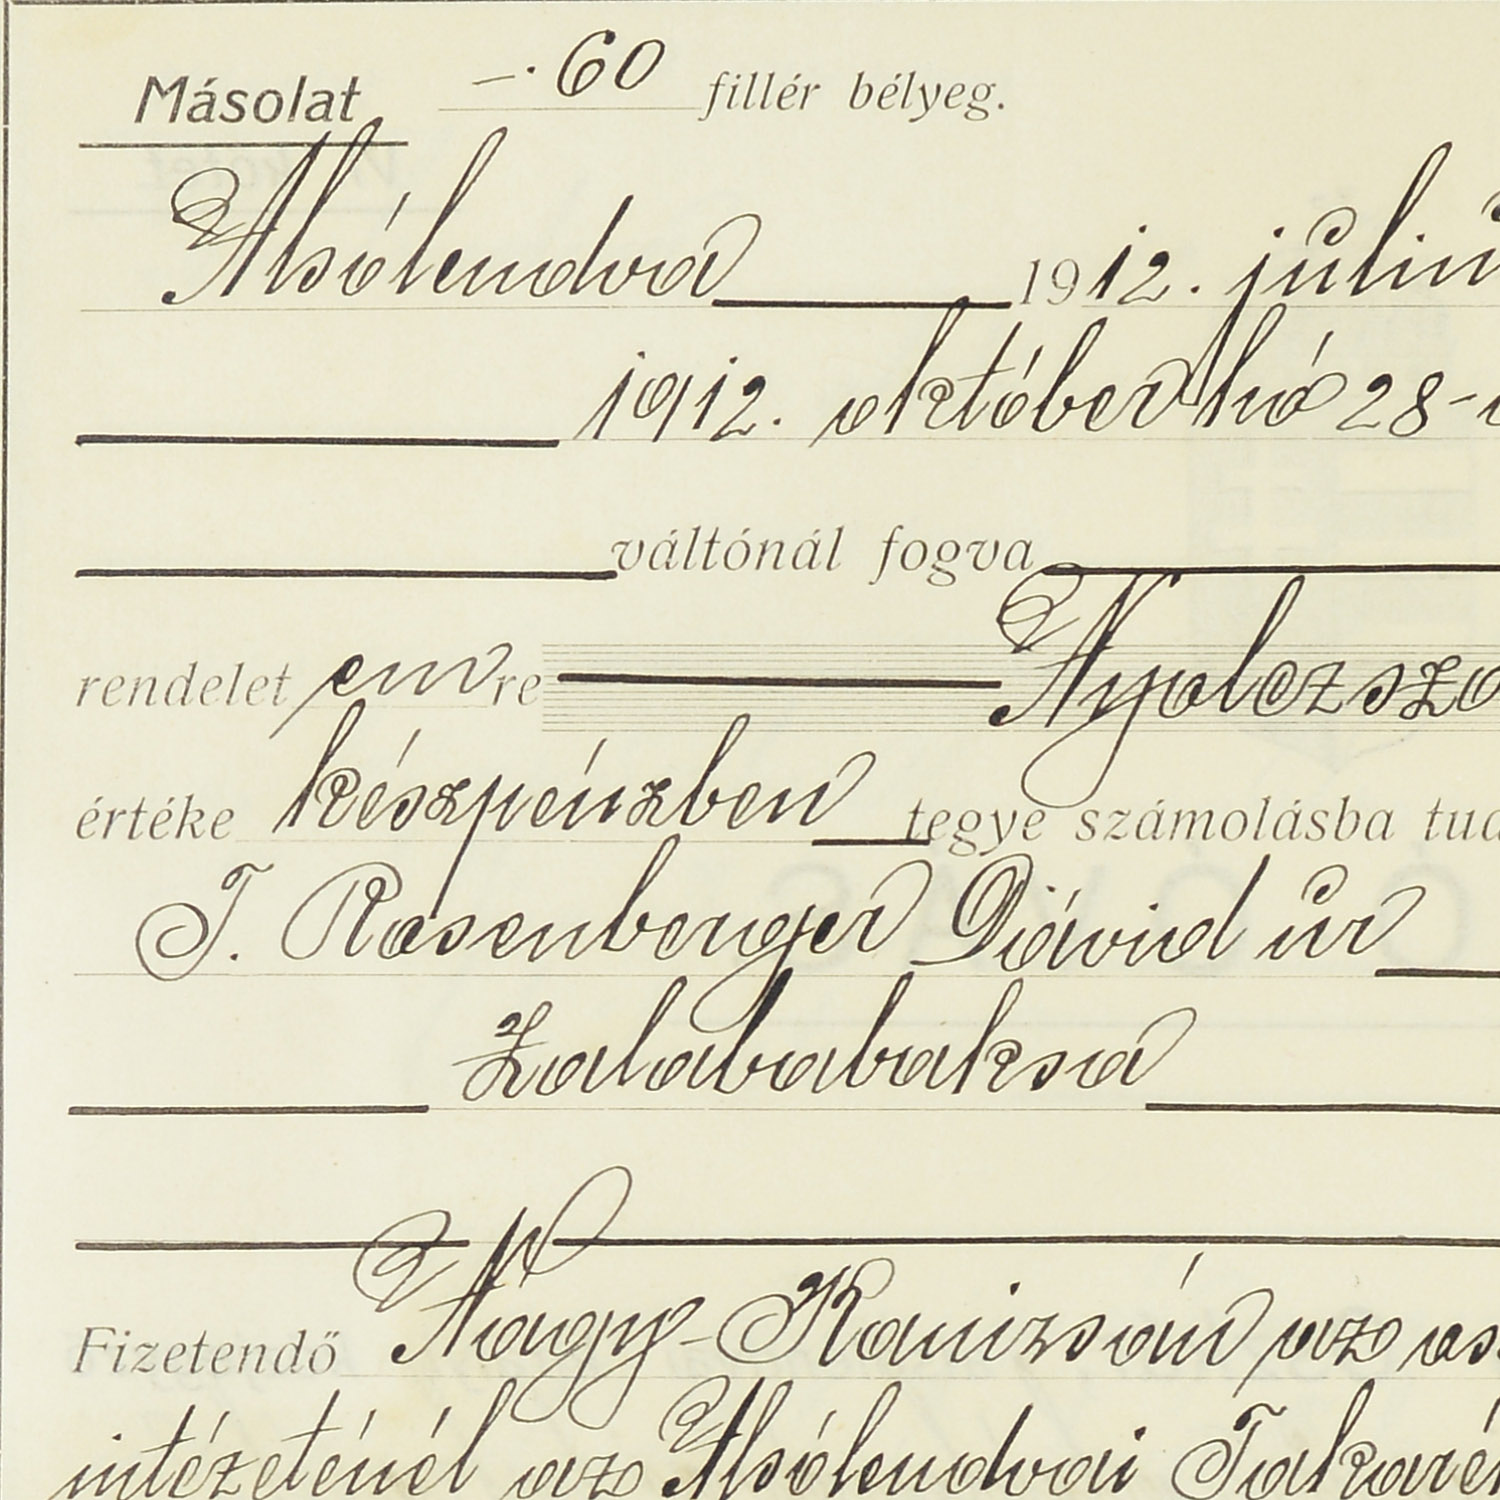 Másolat —·60 fillér bélyeg.
Alsólendva 1912. július
1912. október hó 28-
váltónál fogva
rendelet em re Nyolczszá
értéke készpénzben tegye számolásba tud
T. Rosenberger Dávid úr
Zalabaksa
Fizetendő Nagy-Kanizsán az
intézeténél az Alsólendvai Takaré